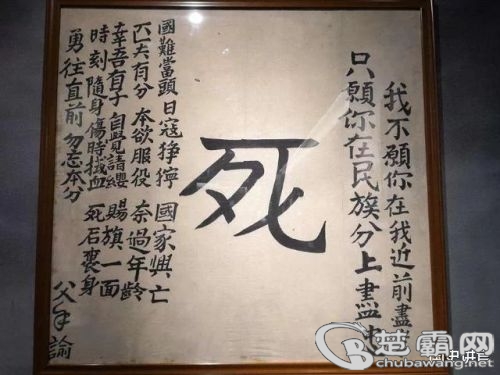 我不願你在我近前盡
只願你在民族分上盡忠
死
國難當頭 日寇猙獰 國家興亡
匹夫有分 本欲服役 奈過年齡
幸吾有子 自覺請纓 賜旗一面
時刻隨身 傷時拭血 死后裹身
勇往直前 勿忘本分
父手諭
楚霸网
chubawang.net